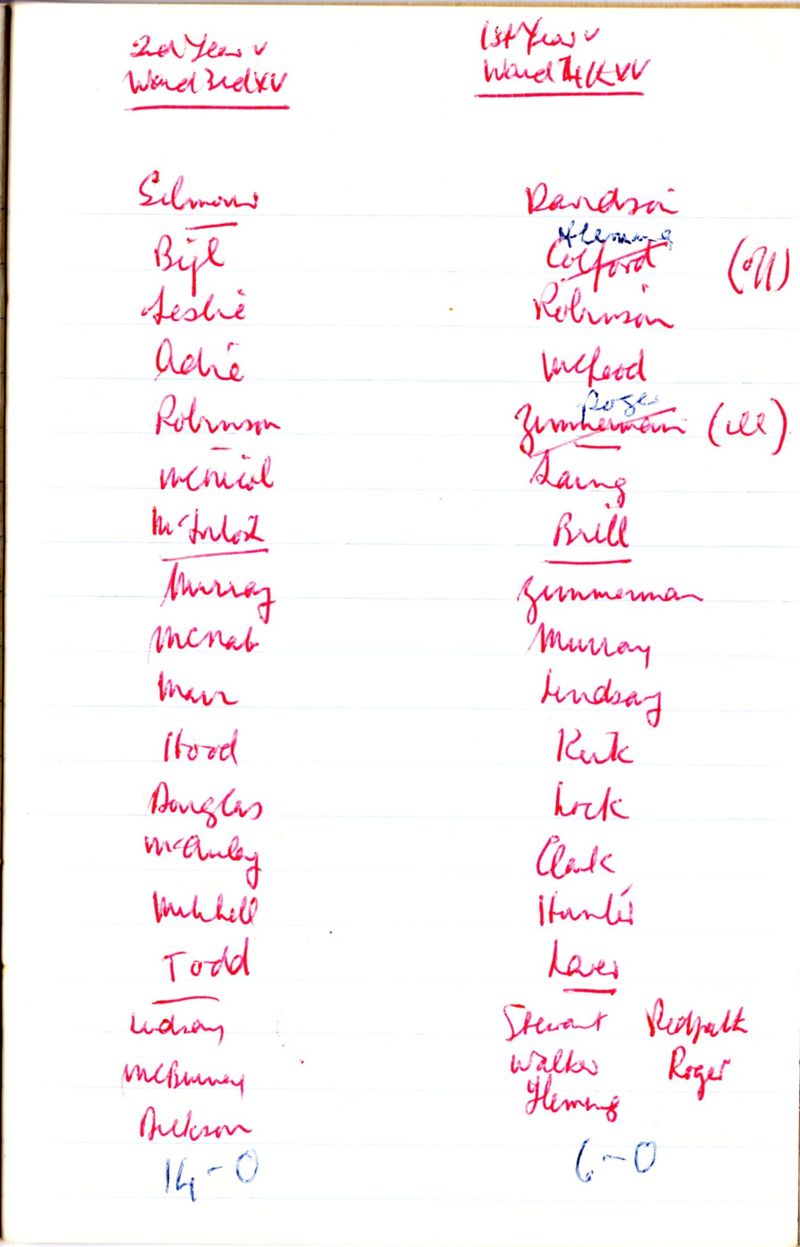 2nd Year v
Ward 3rd XV
Selmour
Bijl
Leslie
Adie
Robinson
McNicol
McIntosh
Murray
McNab
Marr
Hood
Douglas
McAuley
Mitchell
Todd
Lindsay
McBurney
Dickson
14-0
1st Year v
Ward XV
Davidson
Fleming
Colford (off)
Robinson
McLeod
Roger
Zimmerman (ill)
Laing
Brill
Zimmerman
Murray
Lindsay
Kirk
Lock
Clark
Hunter
Laver
Stewart Redpath
Walker Roger
Fleming
6-0